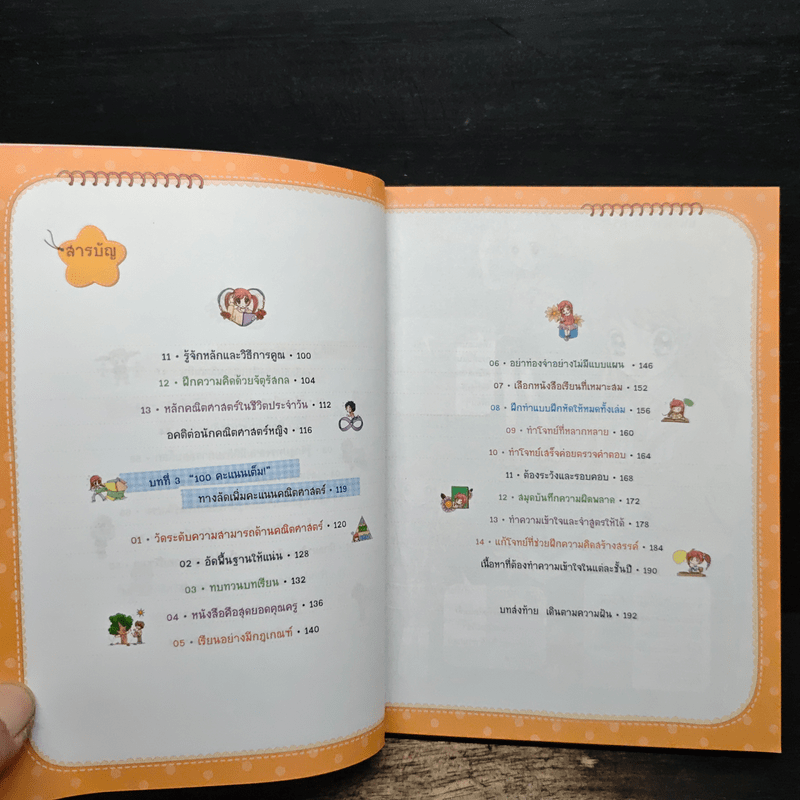 สารบัญ
11 • รู้จักหลักและวิธีการคูณ • 100
12 • ฝึกความคิดด้วยจัตุรัสกล • 104
13 • หลักคณิตศาสตร์ในชีวิตประจำวัน • 112
อคติต่อนักคณิตศาสตร์หญิง • 116
บทที่ 3 "100 คะแนนเต็ม!"
ทางลัดเพิ่มคะแนนคณิตศาสตร์ • 119
01 • วัดระดับความสามารถด้านคณิตศาสตร์ • 120
02 • อัดพื้นฐานให้แน่น • 128
03 • ทบทวนบทเรียน • 132
04 • หนังสือคือสุดยอดคุณครู • 136
05 • เรียนอย่างมีกฎเกณฑ์ • 140
06 • อย่าท่องจำอย่างไม่มีแบบแผน • 146
07 • เลือกหนังสือเรียนที่เหมาะสม • 152
08 • ฝึกทำแบบฝึกหัดให้หมดทั้งเล่ม • 156
09 • ทำโจทย์ที่หลากหลาย • 160
10 • ทำโจทย์เสร็จค่อยตรวจคำตอบ • 164
11 • ต้องระวังและรอบคอบ • 168
12 • สมุดบันทึกความผิดพลาด • 172
13 • ทำความเข้าใจและจำสูตรให้ได้ • 178
14 • แก้โจทย์ที่ช่วยฝึกความคิดสร้างสรรค์ • 184
เนื้อหาที่ต้องทำความเข้าใจในแต่ละชั้นปี • 190
บทส่งท้าย เดินตามความฝัน • 192